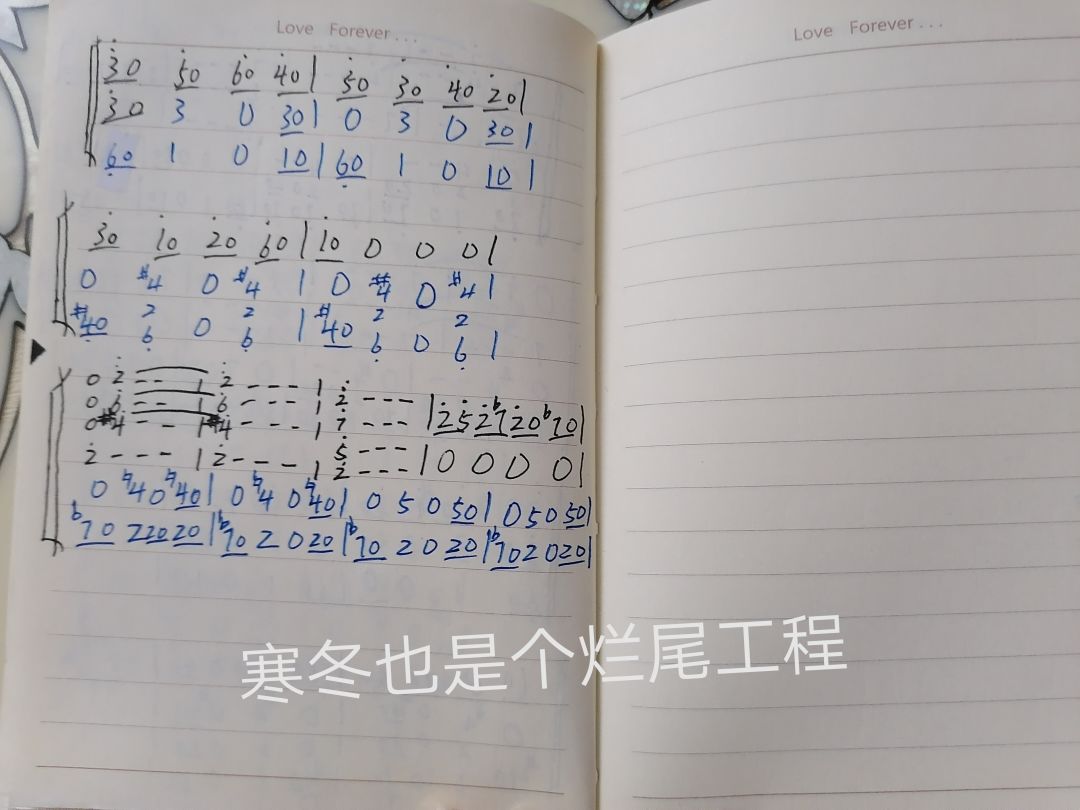 Love Forever...
Love Forever...
30 50 60 40 | 50 30 40 20 |
30 3 0 30 | 0 3 0 30 |
60 1 0 10 | 60 1 0 10 |
30 10 20 60 | 10 0 0 0 |
0 #4 0 #4 | 0 #4 0 #4 |
#40 2 0 2 | #40 2 0 2 |
6 6 6 6
0 2 - - | 2 - - - | 2 - - -
0 6 - - | 6 - - - | 7 - - - | 2 5 2 b7 20 b70 |
0 #4 - - | #4 - - - | 5 - - -
2 - - - | 2 - - - | 2 - - - | 0 0 0 0 |
0 ♮4 0 ♮40 | 0 ♮4 0 ♮40 | 0 5 0 50 | 0 5 0 50 |
b70 2 20 20 | b70 2 0 20 | b70 2 0 20 | b70 2 0 20 |
寒冬也是个烂尾工程